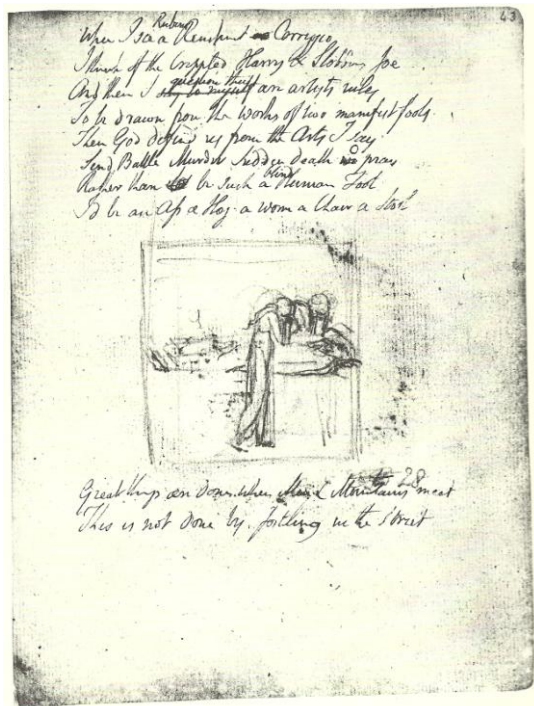 43
When I see a Rubens Rembrant Correggio
I think of the Crippled Harry & Slobbring Joe
And then I question thus are artists rules
To be drawn from the works of two manifest fools
Then God defend us from the Arts I say
Send Battle Murder Sudden death pray
Rather than be such a blind Human Fool
Id be an Ass a Hog a worm a Chair a Stool
Great things are done when Men & Mountains meet
This is not Done by Jostling in the Street